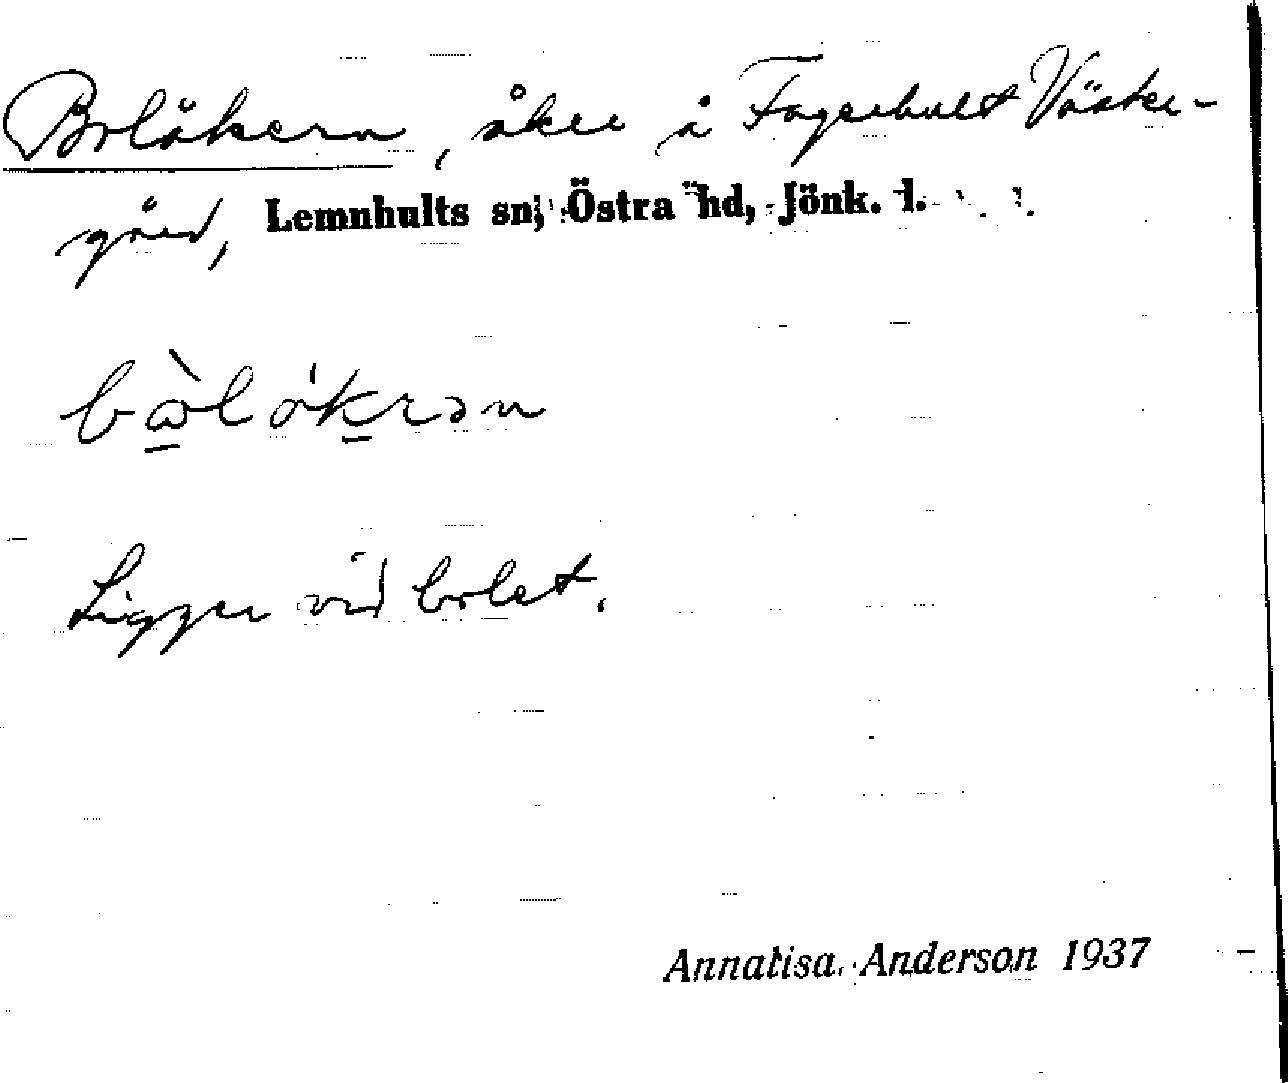 Bolåkern, åker å Fagerhult Väster-
gård, Lemnhults sn, Östra hd, Jönk. l.
Ligger vid bolet.
Annalisa Anderson 1937